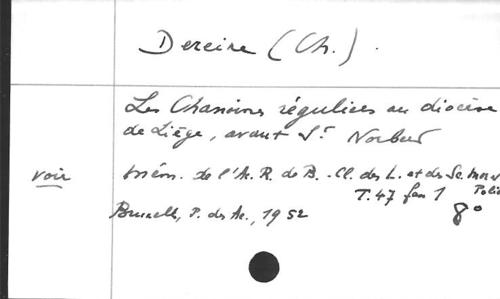 Dereine (Ch.).
Les Chanoines réguliers au diocèse
de Liège, avant St Norbert
voir Mém. de l'A. R. de B. - Cl. des L. et des Sc. mor
Polit
T. 47 fasc 1
Bruxelles, P. des Ac., 1952 8°